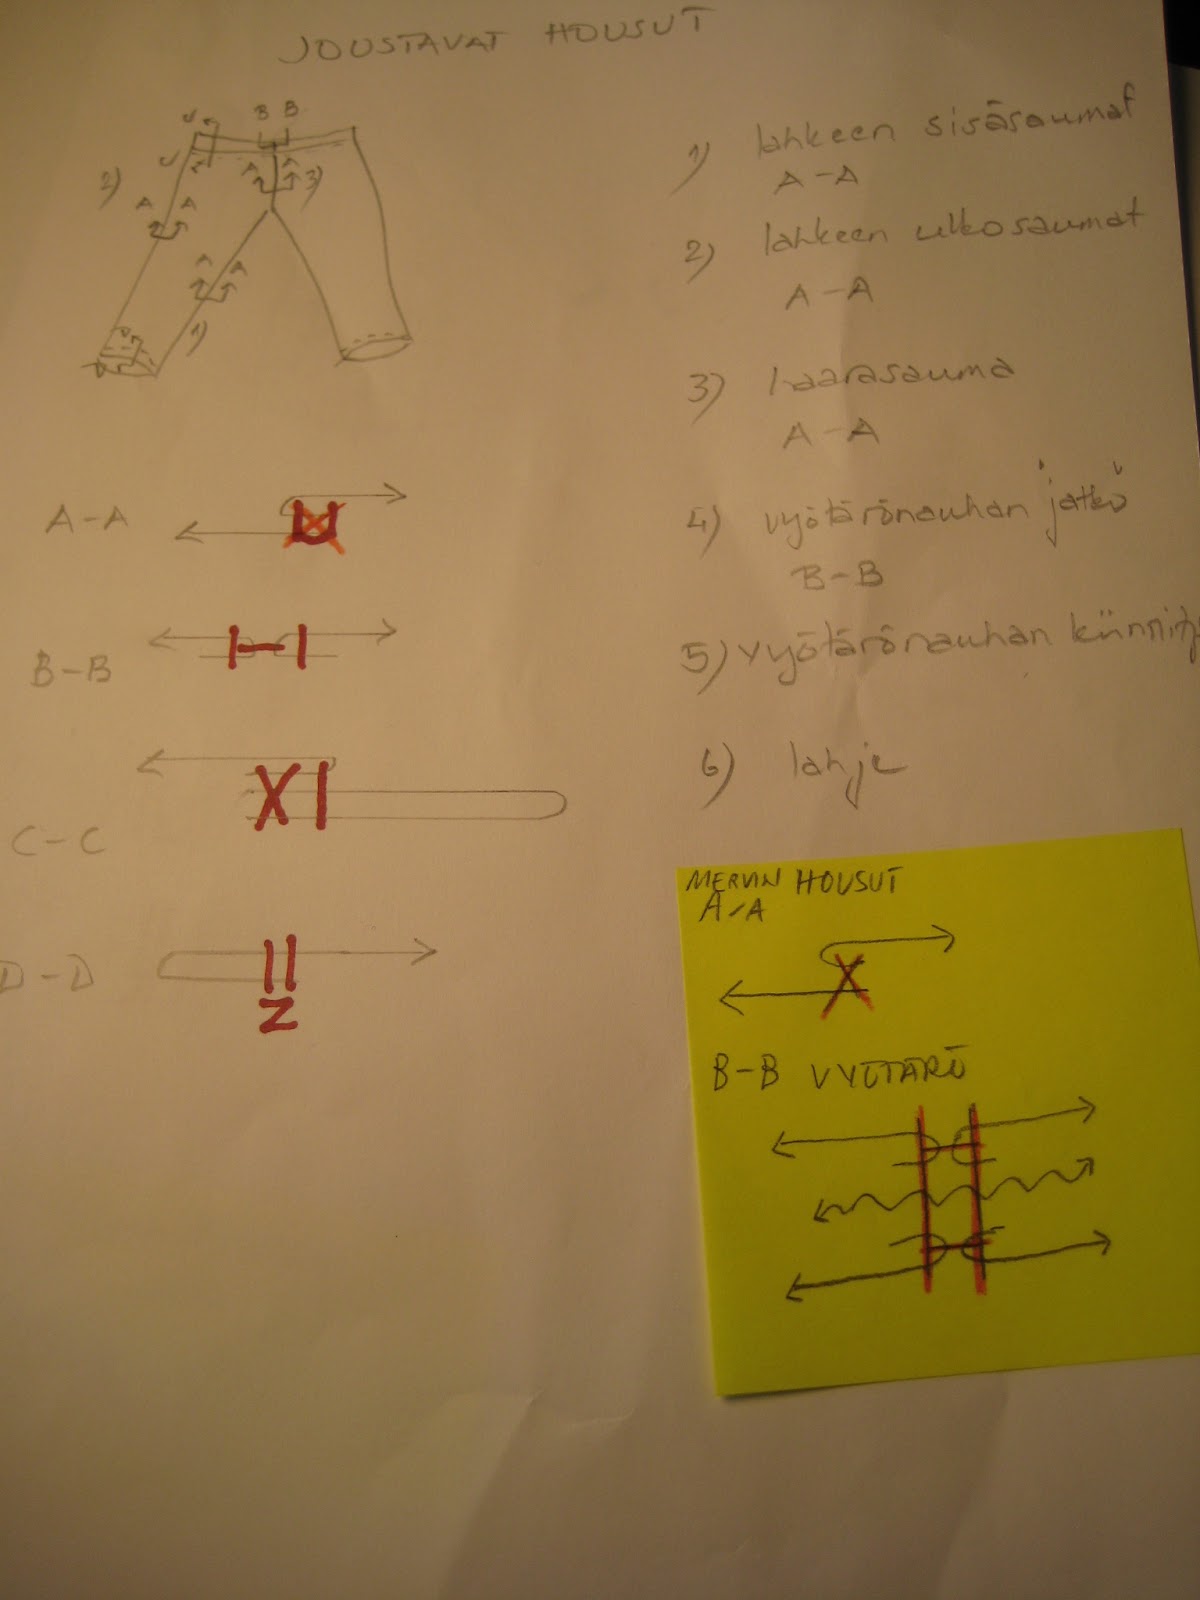 JOUSTAVAT HOUSUT
B B
2)
A A
A A
3)
A A
1)
1) lahkeen sisäsaumat
A-A
2) lahkeen ulkosaumat
A-A
3) haarasauma
A-A
4) vyötärönauhan jatko
B-B
5) vyötärönauhan
6) lahje
A-A
B-B
C-C
D-D
MERVIN HOUSUT
A-A
B-B VYÖTÄRÖ